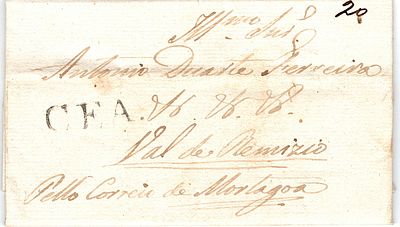 20
Illmo Snr
Antonio Duarte Ferreira
CEA. &c &c &c.
Val de Remizio
Pello Correio de Mortagoa